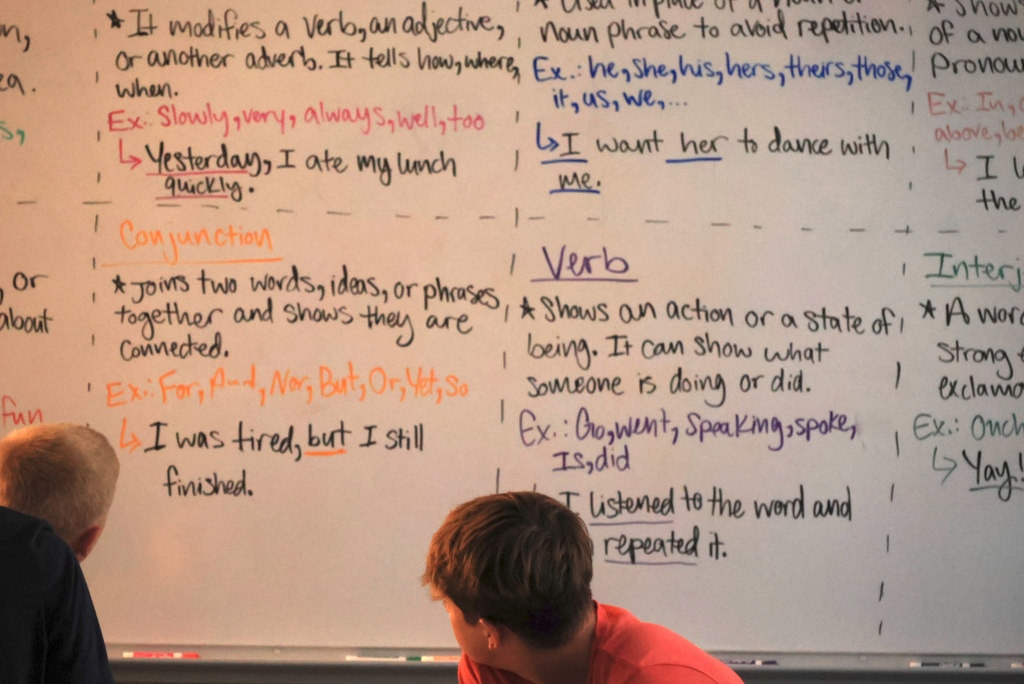 * It modifies a verb, an adjective,
or another adverb. It tells how, where,
when.
Ex.: Slowly, very, always, well, too
↳ Yesterday, I ate my lunch
quickly.
noun phrase to avoid repetition.
Ex.: he, she, his, hers, theirs, those,
it, us, we, ...
↳ I want her to dance with
me.
* Shows
of a
Ex.: In,
above,
↳ I
the
or
about
fun
Conjunction
* Joins two words, ideas, or phrases
together and shows they are
connected.
Ex.: For, And, Nor, But, Or, Yet, So
↳ I was tired, but I still
finished.
Verb
* Shows an action or a state of
being. It can show what
someone is doing or did.
Ex.: Go, went, speaking, spoke,
Is, did
I listened to the word and
repeated it.
* A
strong
Ex.:
↳ Yay!